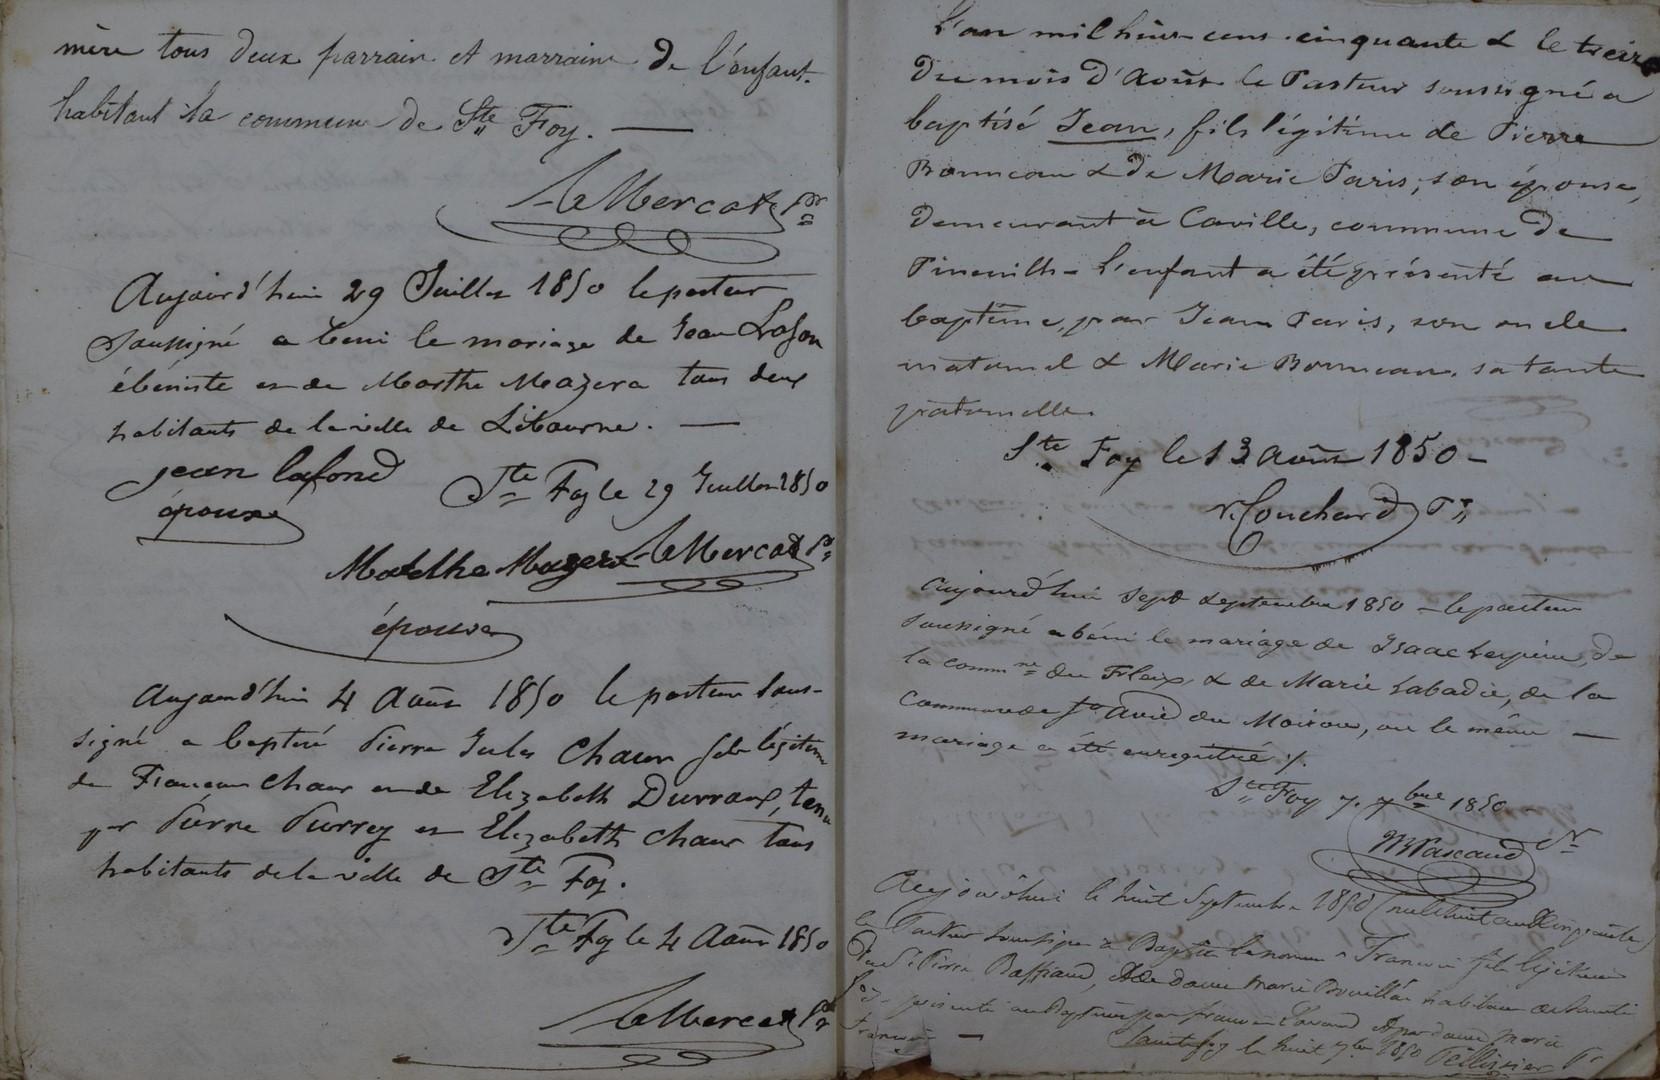 mère tous deux parrain et marraine de l'enfant.
habitant la commune de Ste Foy. —
Le Mercat Pr
Aujourd'hui 29 Juillet 1850 le pasteur
Soussigné a beni le mariage de Jean Lafon
ébéniste et de Marthe Mazera tous deux
habitants de la ville de Libourne. —
jean lafond
époux
Ste Foy le 29 Juillet 1850
Le Mercat Pr
épouse
Aujourd'hui 4 Août 1850 le pasteur Sous-
signé a baptisé Pierre Jules Chaur fils légitime
de François Chaur et de Elizabeth Durraux, tenu
pr Pierre Purrey et Elizabeth Chaur tous
habitants de la ville de Ste Foy.
Ste Foy le 4 Août 1850
Le Mercat Pr
L'an mil huit cent cinquante & le treize
Du mois d'Août le Pasteur soussigné a
baptisé Jean, fils légitime de Pierre
Bonneau & de Marie Paris, son épouse,
Demeurant à Caville, commune de
Pineuilh – L'enfant a été présenté au
baptême, par Jean Paris, son oncle
maternel & Marie Bonneau, sa tante
paternelle.
Ste Foy le 13 août 1850 –
Couchard Pr
Aujourd'hui sept septembre 1850 – le pasteur
soussigné a béni le mariage de Isaac de
la commne du Fleix & de Marie Labadie, de la
commune de du Moiron, où le même —
mariage a été enregistré ./.
Ste Foy 7. 7bre 1850
Pascaud Pr
Aujourd'hui le huit Septembre 1850 (mil huit cent cinquante)
le Pasteur soussigné a Baptisé François fils légitime
de Sr Pierre & de dame Marie habitans de Sainte
Foy – présenté au Baptême par françois & par dame Marie
françois —
Sainte foy le huit 7bre 1850 Pellissier Pr